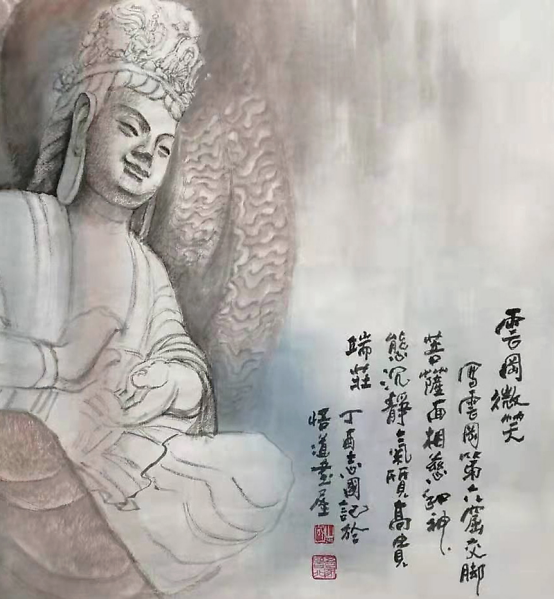 雲岡微笑
写雲岡第六窟交脚
菩薩面相慈和神
態沉靜氣質高貴
端莊 丁酉志國記於
悟道畫屋